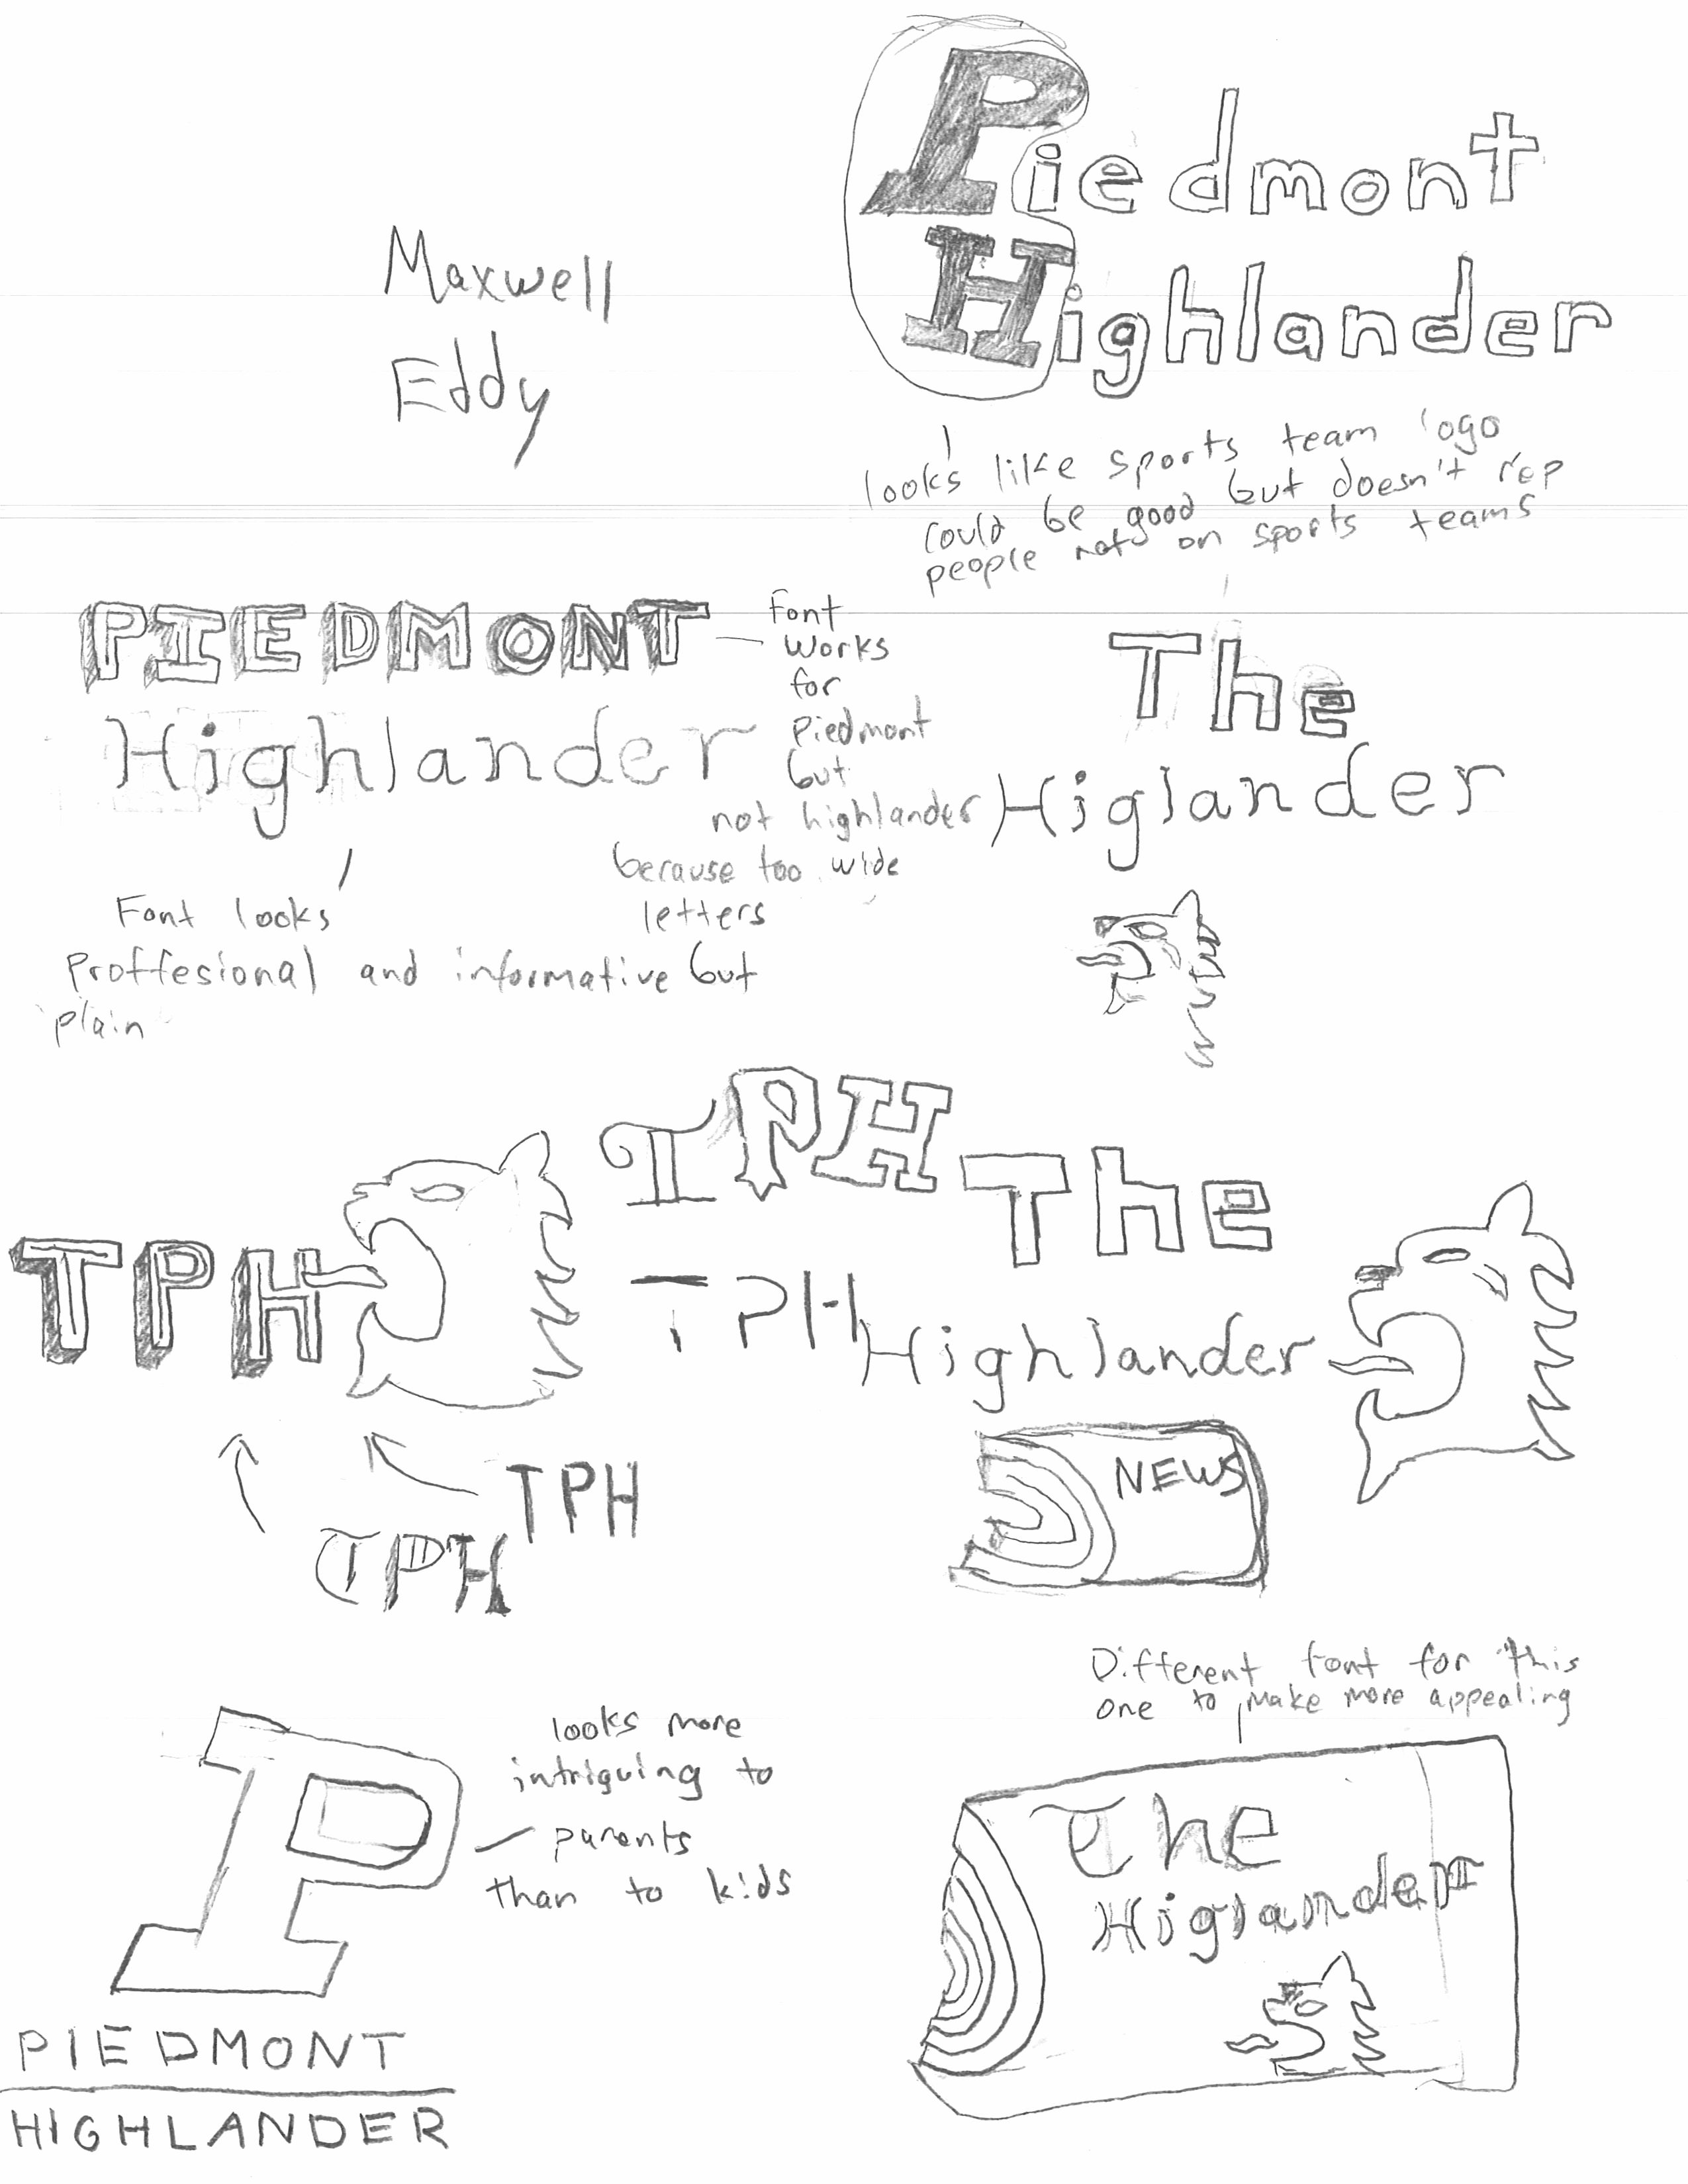 Piedmont
Highlander
Maxwell
Eddy
looks like sports team logo
could be good but doesn't rep
people not on sports teams
PIEDMONT
Highlander
Font
works
for
Piedmont
but
not highlander
because too wide
letters
Font looks
Proffesional and informative but
plain
The
Higlander
TPH
TPH
TPH
The
Highlander
TPH
TPH
NEWS
Different font for this
one to make more appealing
looks more
intriguing to
parents
than to kids
The
Higlander
PIEDMONT
HIGHLANDER